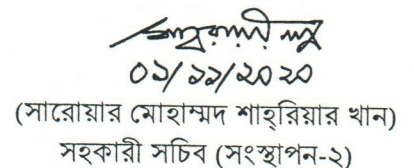 ০১/১১/২০২০
(সারোয়ার মোহাম্মদ শাহ্‌রিয়ার খান)
সহকারী সচিব (সংস্থাপন-২)